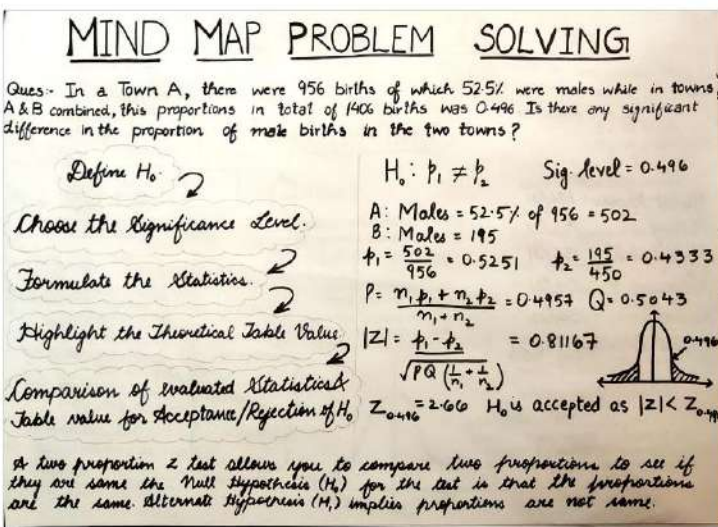 MIND MAP PROBLEM SOLVING
Ques:- In a Town A, there were 956 births of which 52.5% were males while in towns
A & B combined, this proportions in total of 1406 births was 0.496 Is there any significant
difference in the proportion of male births in the two towns?
Define H₀.
Choose the Significance Level.
Formulate the Statistics.
Highlight the Theoretical Table Value
Comparison of evaluated Statistics &
Table value for Acceptance/Rejection of H₀
H₀: p₁ ≠ p₂ Sig. level = 0.496
A: Males = 52.5% of 956 = 502
B: Males = 195
p₁ = 502/956 = 0.5251 p₂ = 195/450 = 0.4333
P = n₁p₁ + n₂p₂ / n₁ + n₂ = 0.4957 Q = 0.5043
|Z| = p₁ - p₂ / √PQ (1/n₁ + 1/n₂) = 0.81167
0.496
Z₀.₄₉₆ = 2.66 H₀ is accepted as |Z| < Z₀.₄₉
A two proportion z test allows you to compare two proportions to see if
they are same the Null Hypothesis (H₀) for the test is that the proportions
are the same. Alternate Hypothesis (H₁) implies proportions are not same.